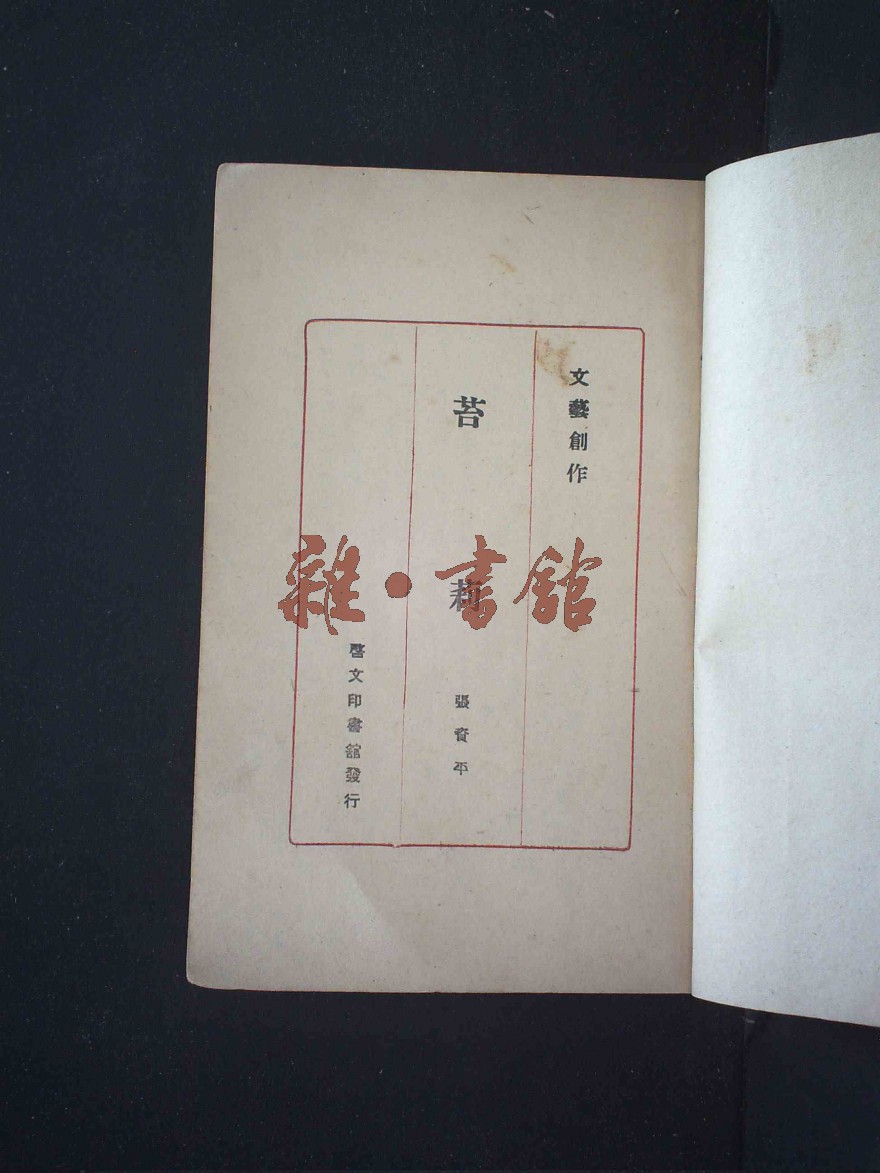 文藝創作
苔莉
張資平
啓文印書館發行
雜·書館